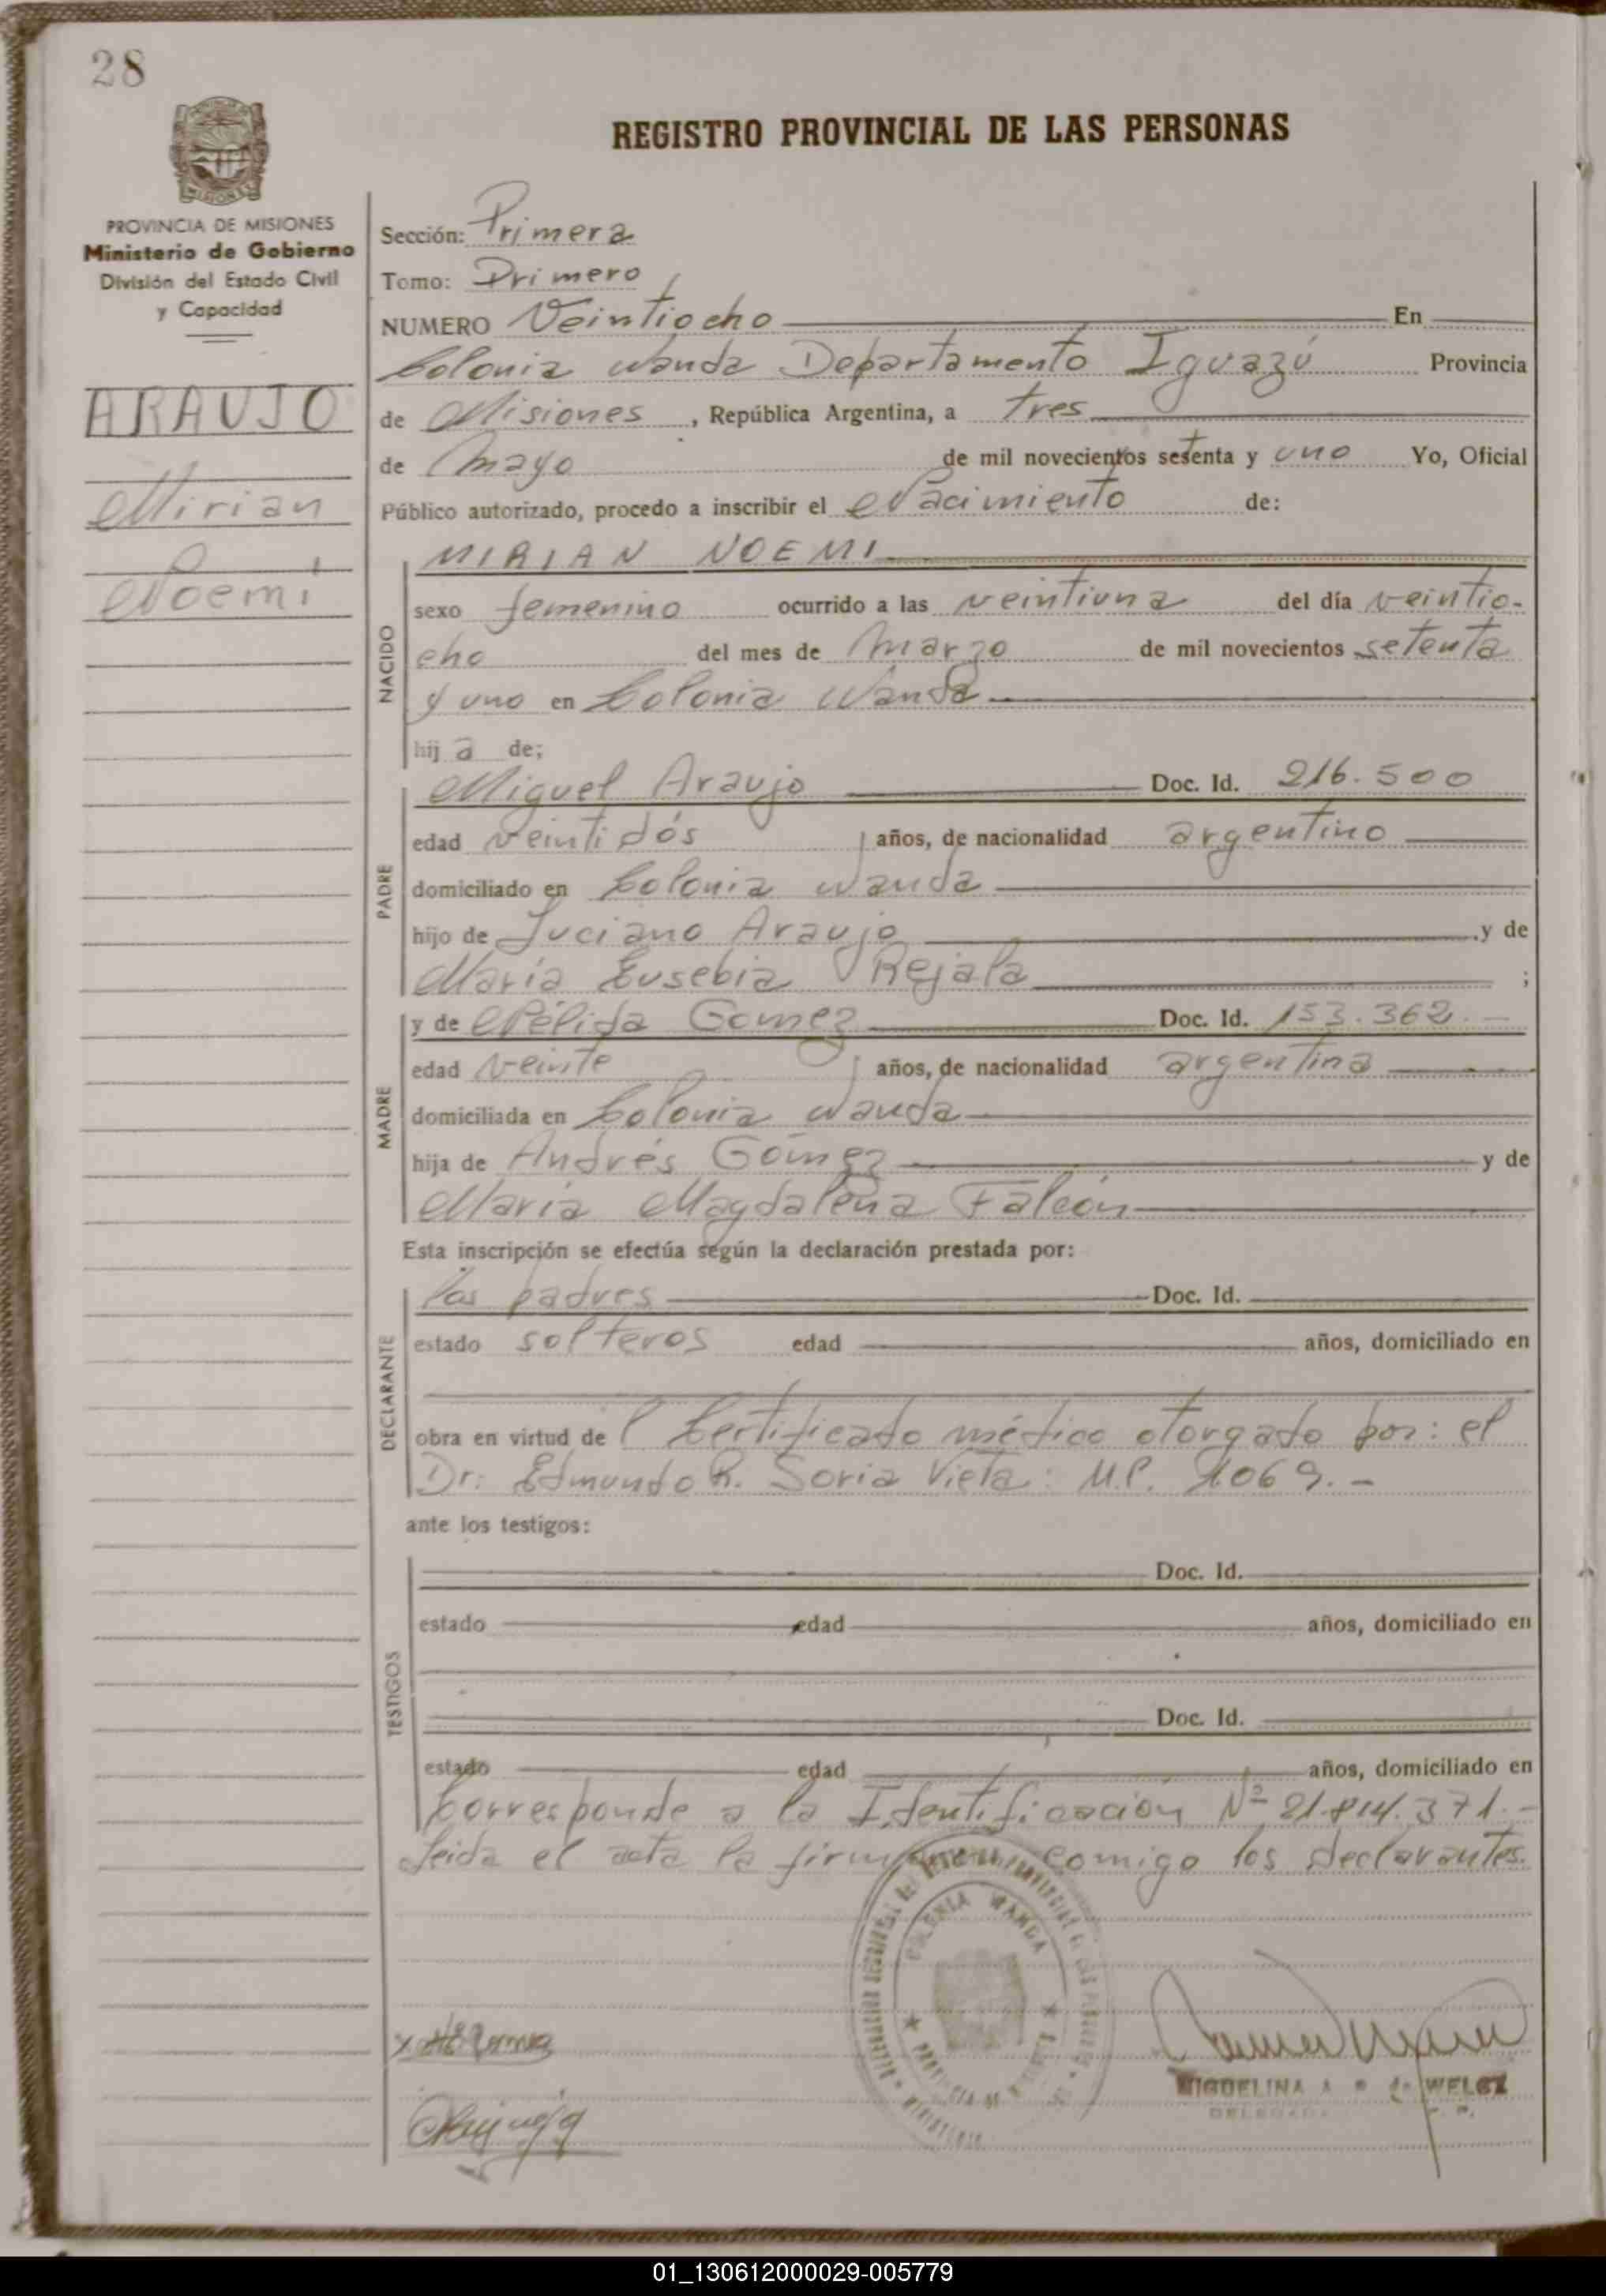 28
REGISTRO PROVINCIAL DE LAS PERSONAS
PROVINCIA DE MISIONES
Ministerio de Gobierno
División del Estado Civil
y Capacidad
ARAUJO
Mirian
Noemi
Sección: Primera
Tomo: Primero
NUMERO Veintiocho En
Colonia Wanda Departamento Iguazú Provincia
de Misiones, República Argentina, a tres
de mayo de mil novecientos setenta y uno Yo, Oficial
Público autorizado, procedo a inscribir el Nacimiento de:
NACIDO
MIRIAN NOEMI
sexo femenino ocurrido a las veintiuna del día veintio-
cho del mes de Marzo de mil novecientos setenta
y uno en Colonia Wanda
hij a de;
PADRE
Miguel Araujo Doc. Id. 216.500
edad veintidós años, de nacionalidad argentino
domiciliado en Colonia Wanda
hijo de Luciano Araujo y de
María Eusebia Rejala ;
MADRE
y de Nélida Gomez Doc. Id. 153.362.-
edad veinte años, de nacionalidad argentina
domiciliada en Colonia Wanda
hija de Andrés Gómez y de
María Magdalena Falcón
Esta inscripción se efectúa según la declaración prestada por:
DECLARANTE
los padres Doc. Id.
estado solteros edad años, domiciliado en
obra en virtud de l Certificado médico otorgado por: el
Dr: Edmundo R. Soria Vieta: M.P. 1069.-
ante los testigos:
TESTIGOS
Doc. Id.
estado edad años, domiciliado en
Doc. Id.
estado edad años, domiciliado en
Corresponde a la Identificación Nº 21.814.371.-
Leida el acta la firman comigo los declarantes.
COLONIA WANDA
MIGUELINA de WELCZ
DELEGADA
01_130612000029-005779